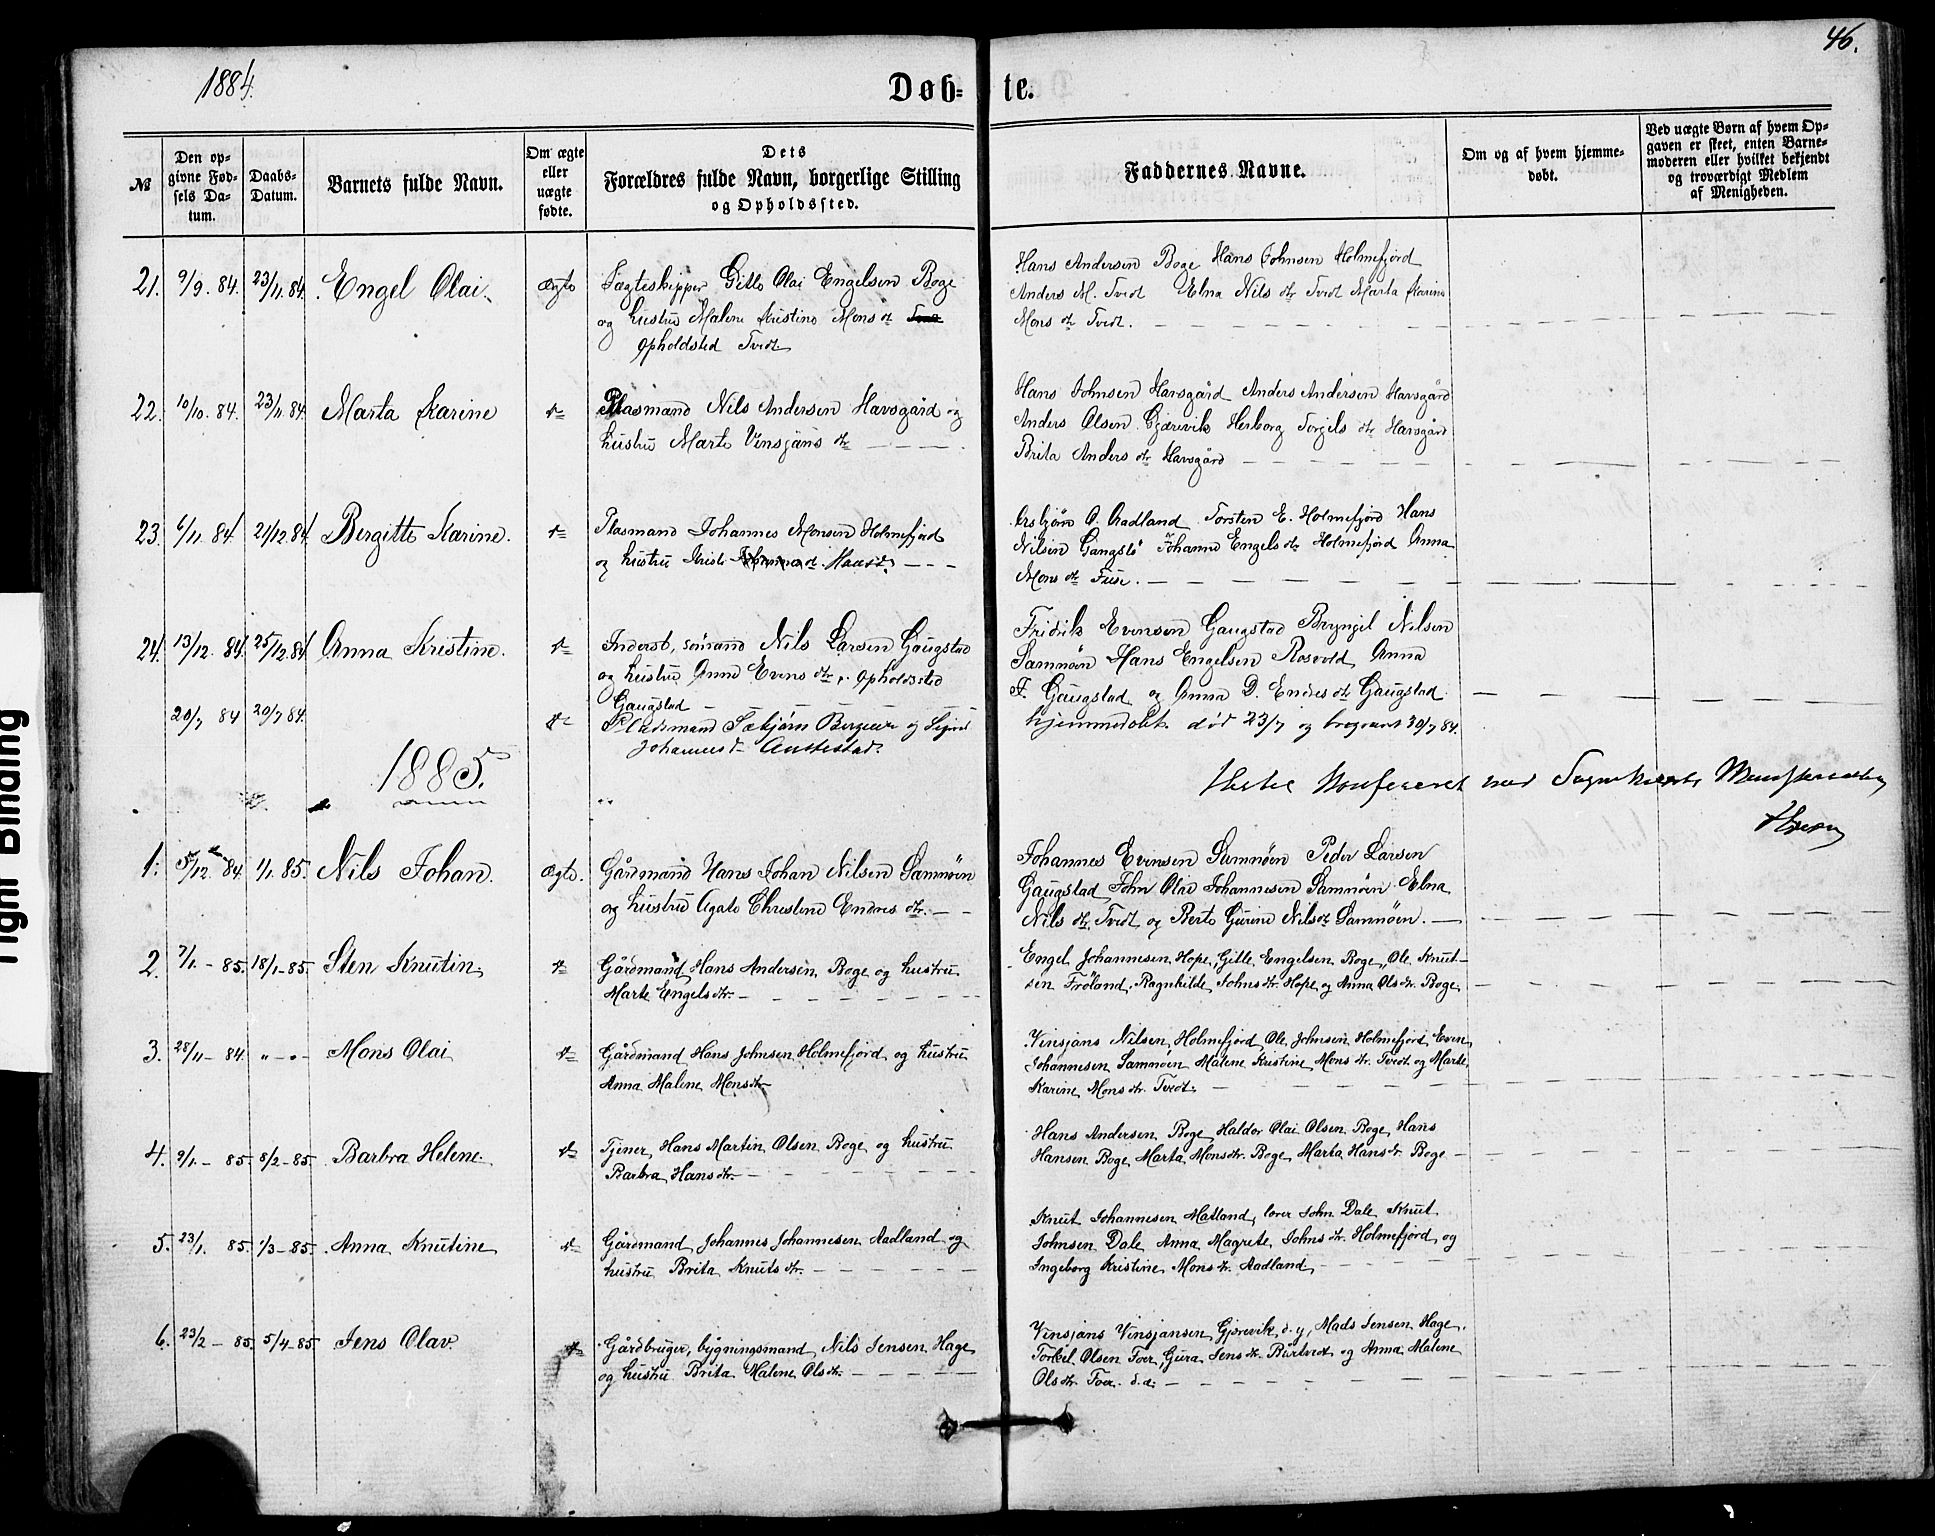 46.
1884.
Døb-te.
№
Den opgivne Fødsels Datum.
Daabs-Datum.
Barnets fulde Navn.
Om ægte eller uægte fødte.
Dets Forældres fulde Navn, borgerlige Stilling og Opholdssted.
Faddernes Navne.
Om og af hvem hjemmedøbt.
Ved uægte Børn af hvem Opgaven er skeet, enten Barnemoderen eller hvilket bekjendt og troværdigt Medlem af Menigheden.
21. 9/9. 84. 23/11. 84. Engel Olai. Ægte Jagteskipper Gitle Olai Engelsen Boge
og hustru Malene Kristine Mons dtr
Opholdsted Tvedt.
Hans Andersen Boge Hans Johnsen Holmefjord
Anders M. Tvedt Elna Nils dtr Tvedt Marta Karine
Mons dtr Tvedt.
22. 10/10. 84. 23/11. 84. Marta Karine Plasmand Nils Andersen Havsgård og
hustru Marte Vinsjans dtr
Hans Johnsen Havsgård Anders Andersen Havsgård
Anders Olsen Gjærevik Herborg Torgils dtr Havsgård
Brita Anders dtr Havsgård
23. 6/11. 84 21/12. 84. Bergitte Karine. Plasmand Johannes Monsen Holmefjord
og hustru
Asbjørn O. Aadland Torsten E. Holmefjord Hans
Nilsen Gangstø Johanne Engels dtr Holmefjord Anna
Mons dtr Fuse.
24. 13/12. 84. 25/12. 84 Anna Kristine. Inderst, sømand Nils Larsen Gaugstad
og hustru Anna Evens dtr, Opholdssted
Gaugstad
Fridrik Evensen Gaugstad Bryngel Nilsen
Samnøen Hans Engelsen Rosvold, Anna
F. Gaugstad og Anna D. Endres dtr Gaugstad.
20/7 84 20/7 84. Pladsmand
Johannesd
hjemmedøbt død 23/7 og begravet 30/7 84.
1885.
1. 5/12. 84 1/1. 85. Nils Johan. Ægte. Gårdmand Hans Johan Nilsen Samnøen
og hustru Agate Christine Endres dtr.
Johannes Evensen Samnøen Peder Larsen
Gaugstad John Olai Johannesen Samnøen Elna
Nils dtr Tvedt og Berte Gurine Nilsdtr Samnøen.
2. 7/1 - 85. 18/1 - 85. Sten Knutin Gårdmand Hans Andersen Boge og hustru
Marte Engelsdtr
Engel Johannesen Hope, Gitle Engelsen Boge, Ole Knut-
sen Frøland, Ragnhilde Johnsdtr Hope og Anna Olsdtr Boge
3. 28/11 - 84. " - " - Mons Olai Gårdmand Hans Johnsen Holmefjord og hustru
Anna Malene Monsdtr
Vinsjans Nilsen Holmefjord Ole Johnsen Holmefjord Even
Johannesen Samnøen Malene Kristine Mons dtr Tvedt og Marte
Karine Mons dtr Tvedt.
4. 9/1 - 85. 8/2 - 85. Barbra Helene Tjener Hans Martin Olsen Boge og hustru
Barbra Hansdtr.
Hans Andersen Boge Haldor Olai Olsen Boge Hans
Hansen Boge Marta Monsdtr Boge Marta Hansdtr Boge
5. 23/1. 85. 1/3 - 85. Anna Knutine Gårdmand Johannes Johannesen Aadland og
hustru Brita Knutsdtr.
Knut Johannesen Hatland, lærer John Dale Knut
Johnsen Dale Anna Magrete Johnsdtr Holmefjord og
Ingeborg Kristine Monsdtr Aadland
6. 23/2 - 85. 5/4 - 85. Jens Olav. Gårdbruger, bygningsmand Nils Jensen Hage
og hustru Brita Malene Olsdtr.
Vinsjans Vinsjansen Gjærevik d. y, Mads Jensen Hage.
Torkel Olsen Toer, Gura Jensdtr og Anna Malene
Olsdtr Toer.
Tight Binding